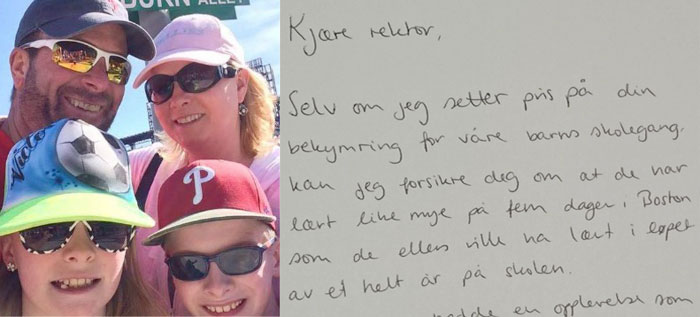 ALLEY
P
Kjære rektor,
Selv om jeg setter pris på din
bekymring for våre barns skolegang.
kan jeg forsikre deg om at de har
lært like mye på fem dager i Boston
som de ellers ville ha lært i løpet
av et helt år på skolen.
en opplevelse som